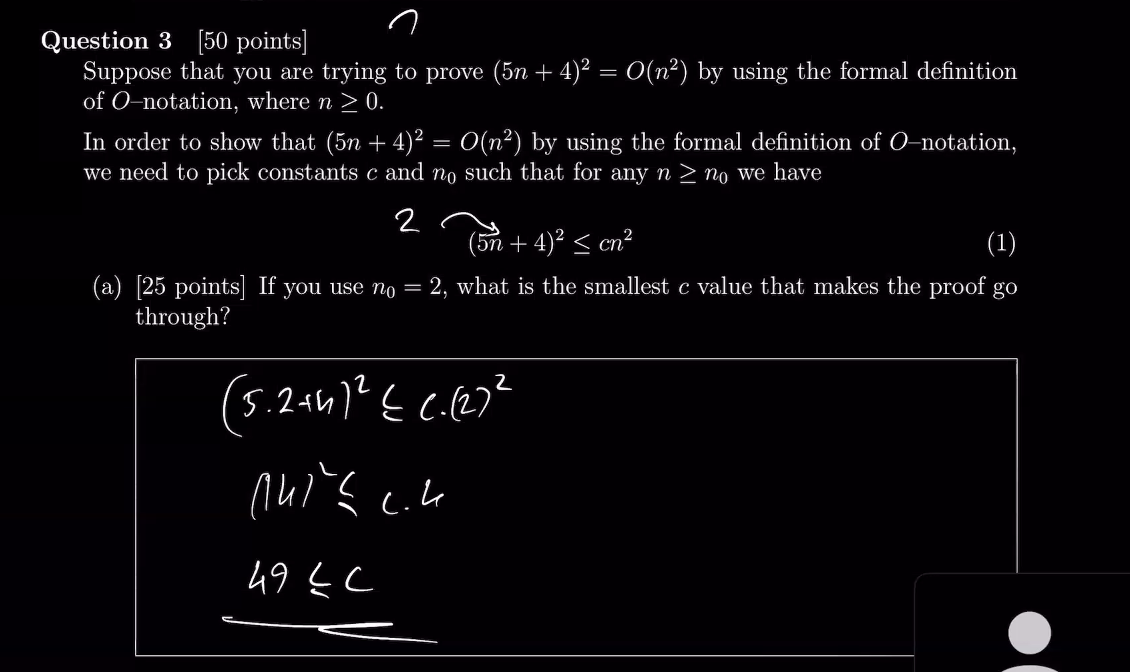 Question 3 [50 points]
Suppose that you are trying to prove (5n + 4)² = O(n²) by using the formal definition
of O–notation, where n ≥ 0.
In order to show that (5n + 4)² = O(n²) by using the formal definition of O–notation,
we need to pick constants c and n₀ such that for any n ≥ n₀ we have
2
(5n + 4)² ≤ cn² (1)
(a) [25 points] If you use n₀ = 2, what is the smallest c value that makes the proof go
through?
(5.2+4)² ≤ c.(2)²
(14)² ≤ c.4
49 ≤ c